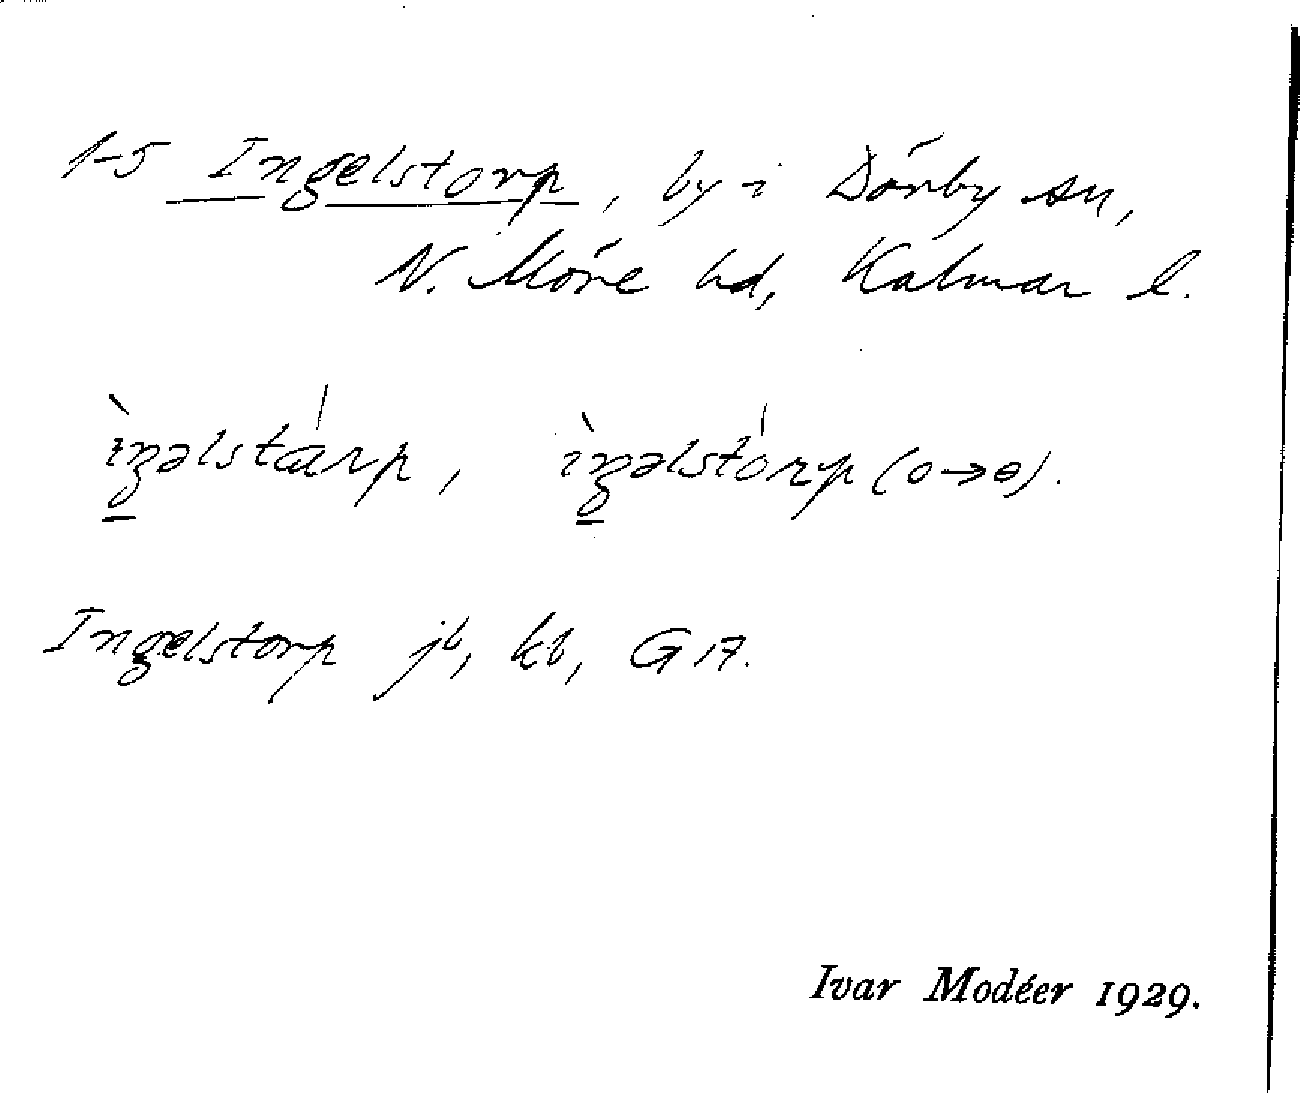 1-5 Ingelstorp, by i Dörby sn,
N. Möre hd, Kalmar l.
ìŋəlstárp, ìŋəlstórp (o→ɵ).
Ingelstorp jb, kb, G 17.
Ivar Modéer 1929.